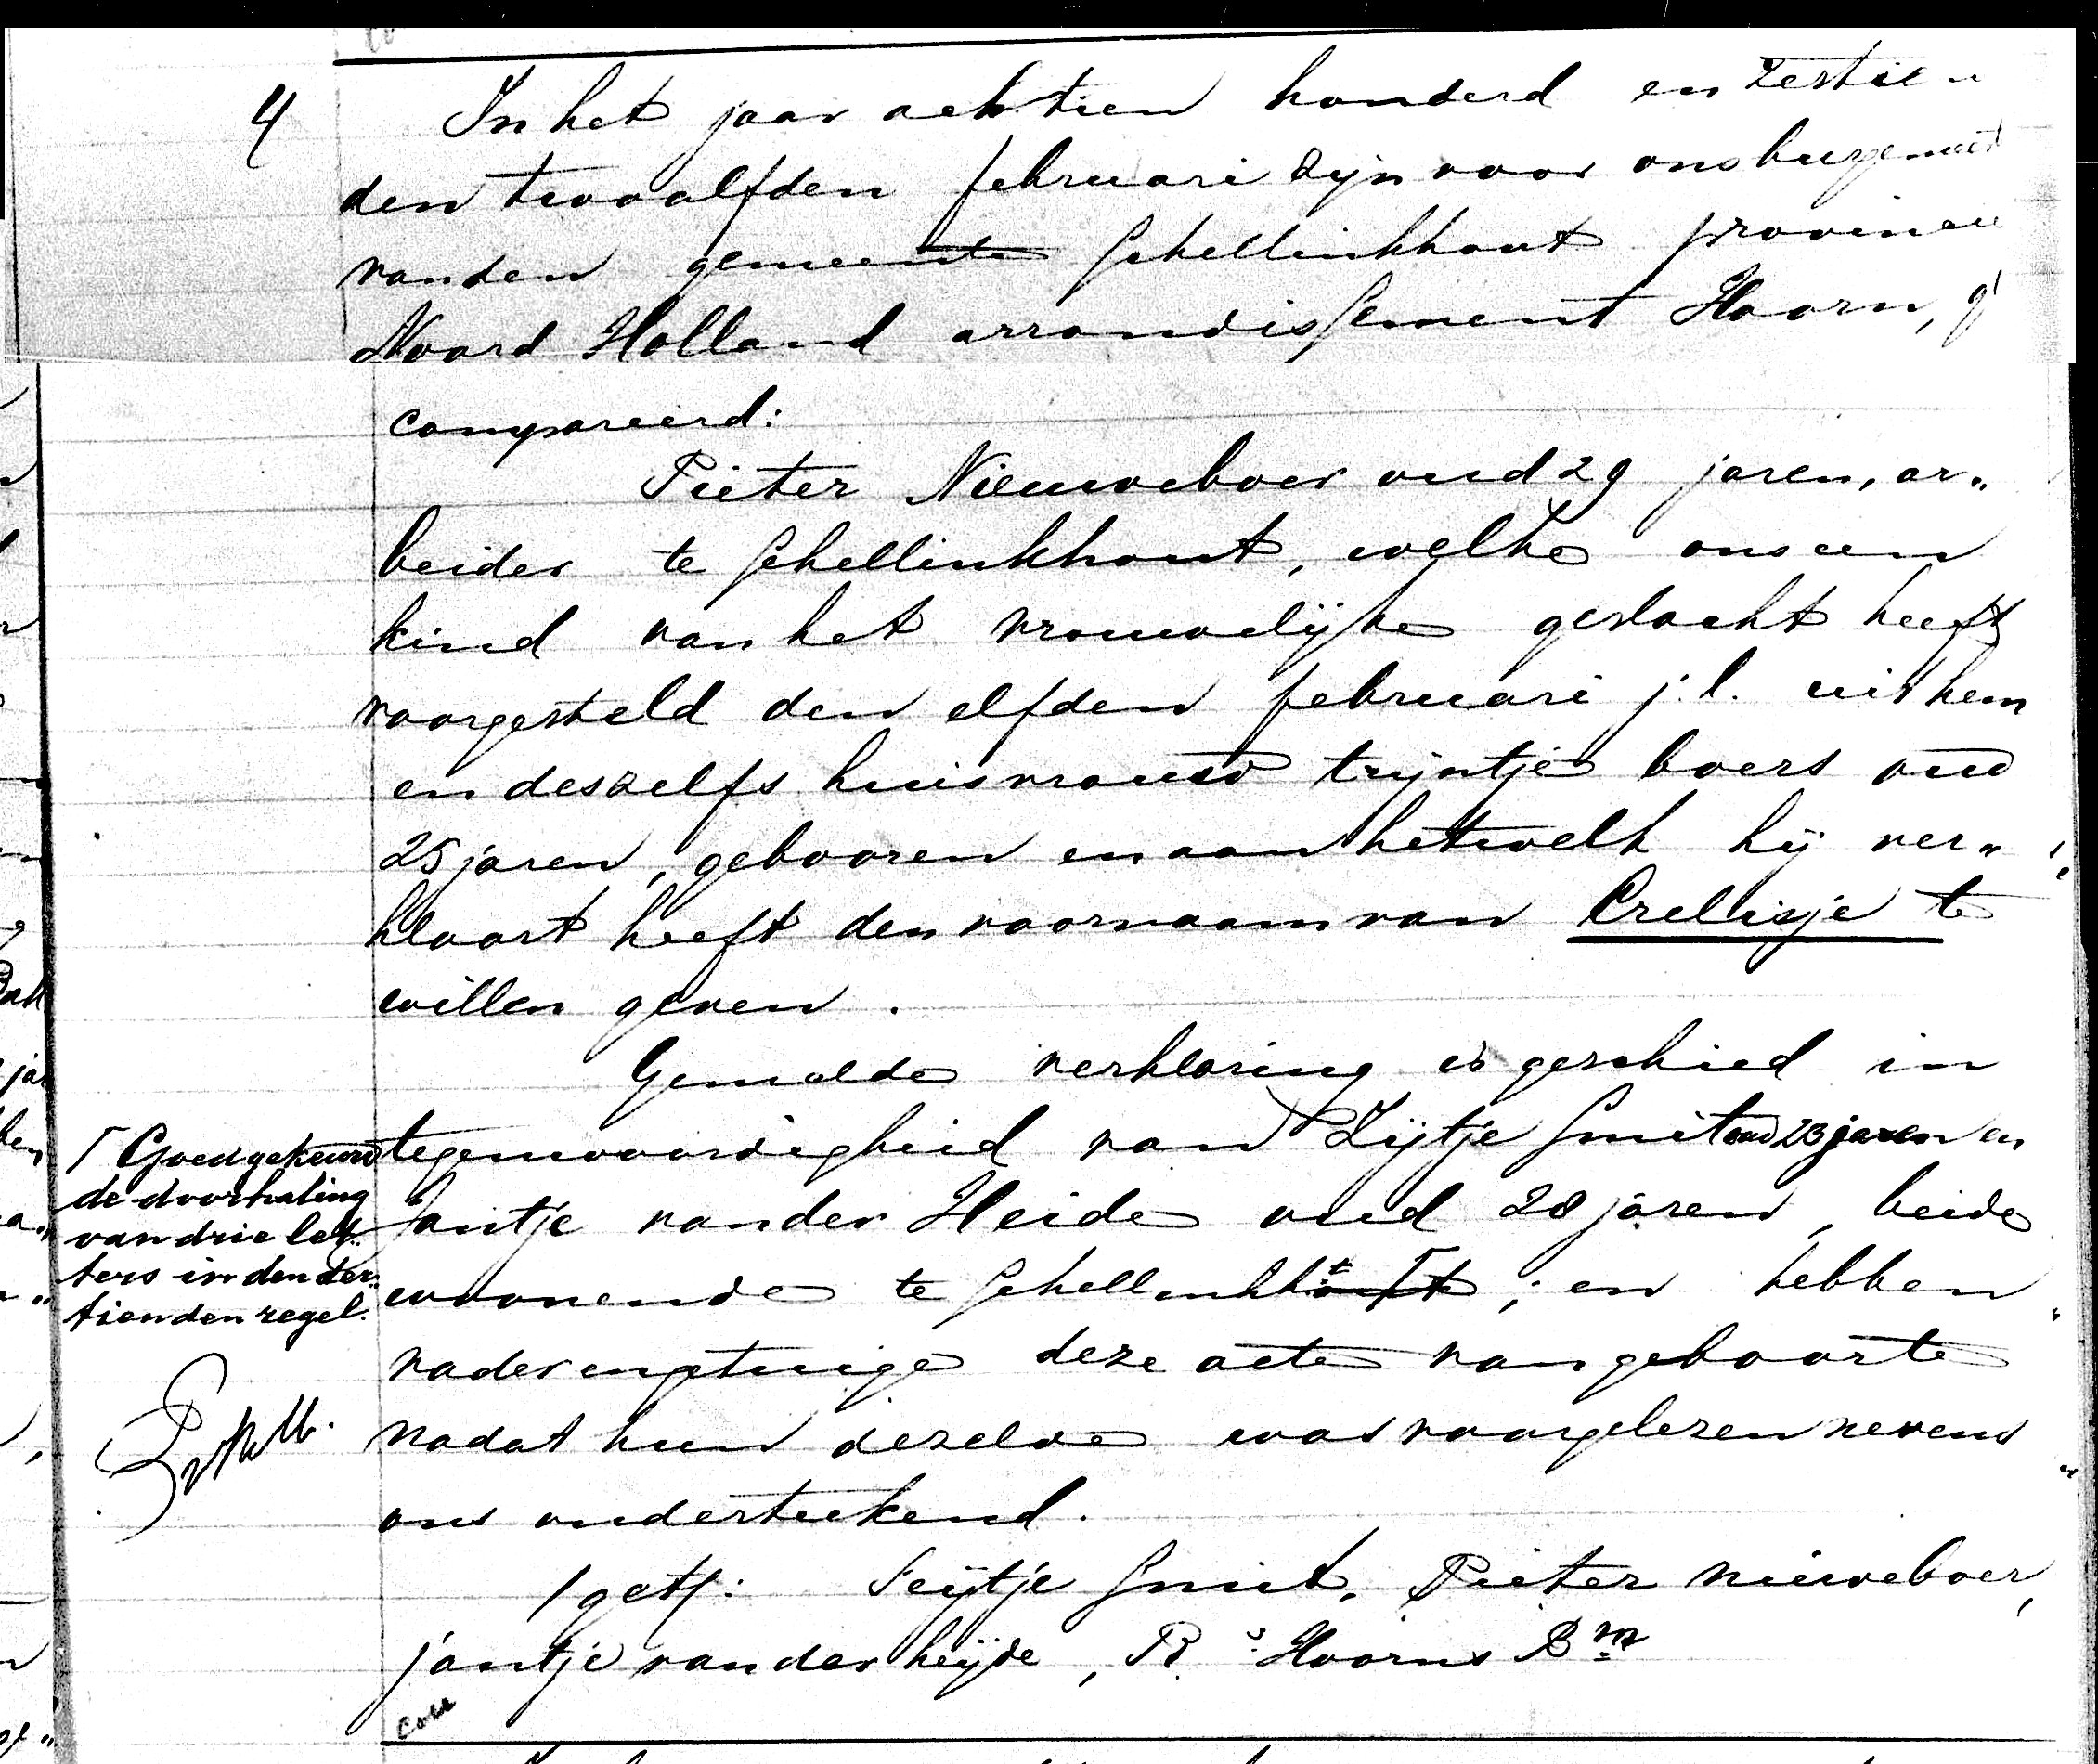 4 In het jaar achttien honderd en zestien
den twaalfden februari zijn voor ons burgemeest
van den gemeente Schellinkhout provincie
Noord Holland arrondissement Hoorn, g
compareerd:
Pieter Nieuweboer oud 29 jaren, ar„
beider te Schellinkhout, welke ons een
kind van het vrouwelijke geslacht heeft
voorgesteld den elfden februari j.l. uit hem
en deszelfs huisvrouw trijntje boers oud
25 jaren, gebooren en aan hetwelk hij ver„
klaart heeft den voornaam van Crelisje te
willen geven.
Gemelde verklaring is geschied in
tegenwoordigheid van Zijtje Smit oud 23 jaren en
Jantje van der Heide oud 28 jaren, beide
woonende te Schellenkhout; en hebben
vader en getuige deze acte van geboorte
nadat hun dezelve was voorgelezen nevens
ons onderteekend.
/get/: Seijtje Smit, Pieter nieuweboer,
jantje van der heijde, R.s Hoorns Bm
Coll
Goedgekeurd
de doorhaling
van drie let„
ters in den der„
tienden regel.